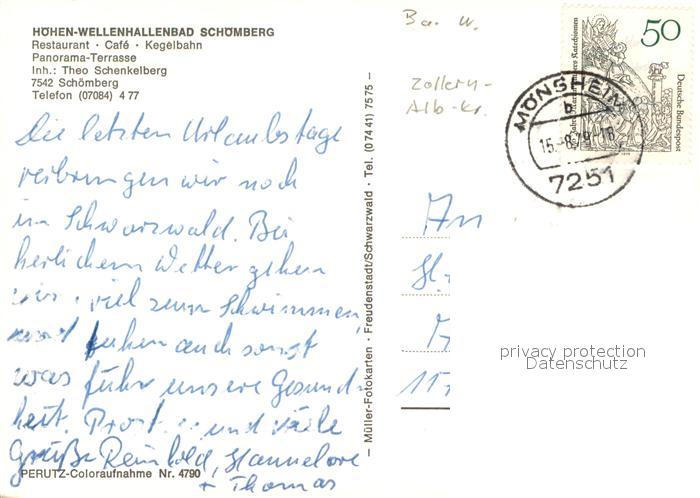 HÖHEN-WELLENHALLENBAD SCHÖMBERG
Restaurant · Café · Kegelbahn
Panorama-Terrasse
Inh.: Theo Schenkelberg
7542 Schömberg
Telefon (07084) 4 77
Ba. W.
Zollern-
Alb-Kr.
50
Deutsche Bundespost
Katechismus
MÖNSHEIM
b
15.-8.79-18
7251
Die letzten Urlaubstage
verbringen wir noch
im Schwarzwald. Bei
herlichem Wetter gehen
wir viel zum Schwimmen,
und tuhen auch sonst
was für unsere Gesund-
heit. Prost und viele
Grüße Reinhold, Hannelore
+ Thomas
PERUTZ-Coloraufnahme Nr. 4790
— Müller-Fotokarten · Freudenstadt/Schwarzwald · Tel. (0 74 41) 75 75 —
An
privacy protection
Datenschutz